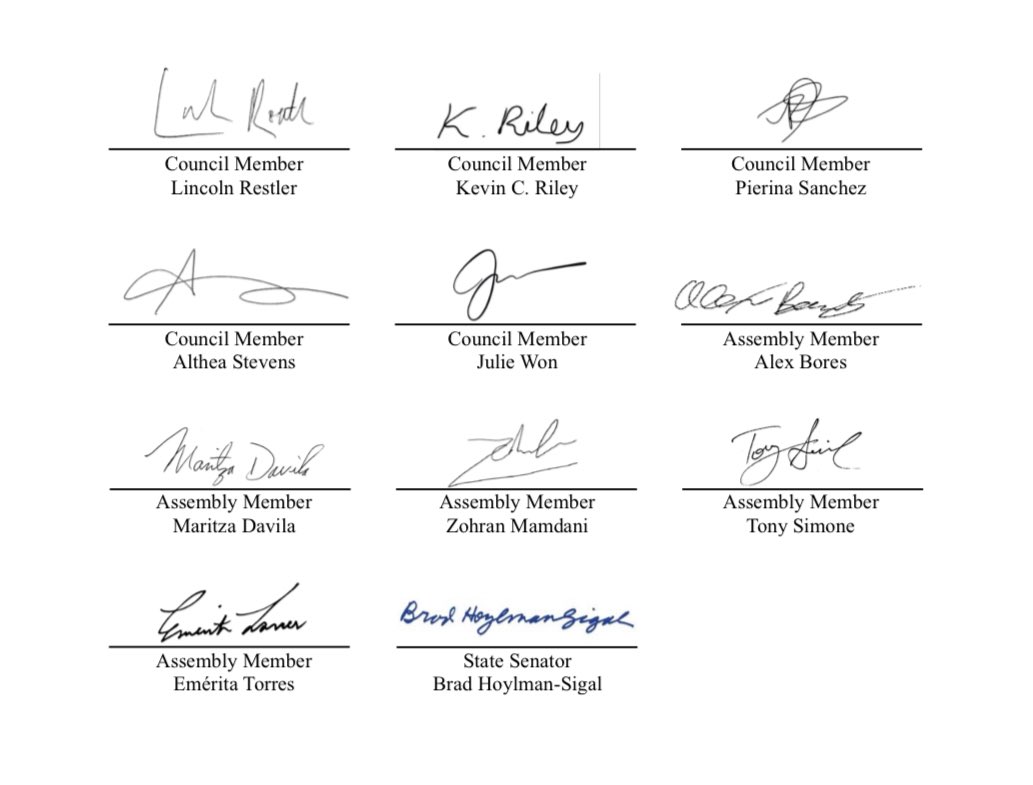 K. Riley
Council Member
Lincoln Restler
Council Member
Kevin C. Riley
Council Member
Pierina Sanchez
Council Member
Althea Stevens
Council Member
Julie Won
Assembly Member
Alex Bores
Maritza Davila
Tony
Assembly Member
Maritza Davila
Assembly Member
Zohran Mamdani
Assembly Member
Tony Simone
Brad Hoylman-Sigal
Assembly Member
Emérita Torres
State Senator
Brad Hoylman-Sigal